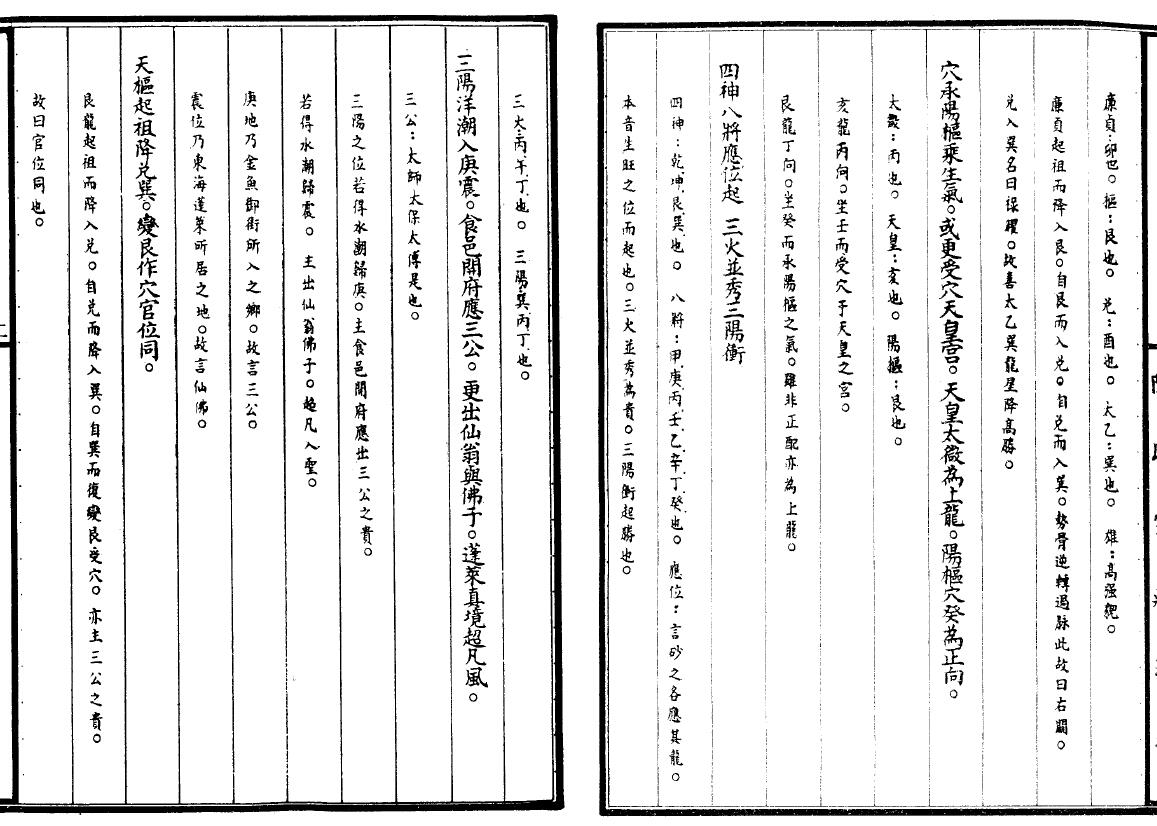 廉貞：卯也。樞：艮也。兑：酉也。太乙：巽也。雄：高强貌。
廉貞起祖而降入艮。自艮而入兑。自兑而入巽。勢骨逆轉過脉此故曰右關。
兑入巽名曰禄櫻。故喜太乙巽龍星降高勝。
穴承陽樞乘生氣。或更受穴天皇宫。天皇太微為上龍。陽樞穴癸為正向。
太微：丙也。天皇：亥也。陽樞：艮也。
亥龍丙向。坐壬而受穴于天皇之宮。
艮龍丁向。坐癸而承陽樞之氣。雖非正配亦為上龍。
四神八將應位起 三火並秀三陽衝
四神：乾坤艮巽也。八將：甲庚丙壬乙辛丁癸也。應位：言砂之各應其龍。
本音生旺之位而起也。三火並秀為貴。三陽衝起勝也。
三火：丙午丁也。三陽：巽丙丁也。
三陽洋潮入庚震。食邑開府應三公。更出仙翁與佛子。蓬萊真境超凡風。
三公：太師太保太傅是也。
三陽之位若得水潮歸庚。主食邑開府應出三公之貴。
若得水潮歸震。主出仙翁佛子。超凡入聖。
庚地乃金魚御街所入之鄉。故言三公。
震位乃東海蓬萊所居之地。故言仙佛。
天樞起祖降兑巽。變艮作穴官位同。
艮龍起祖而降入兑。自兑而降入巽。自巽而復變艮受穴。亦主三公之貴。
故曰官位同也。
二